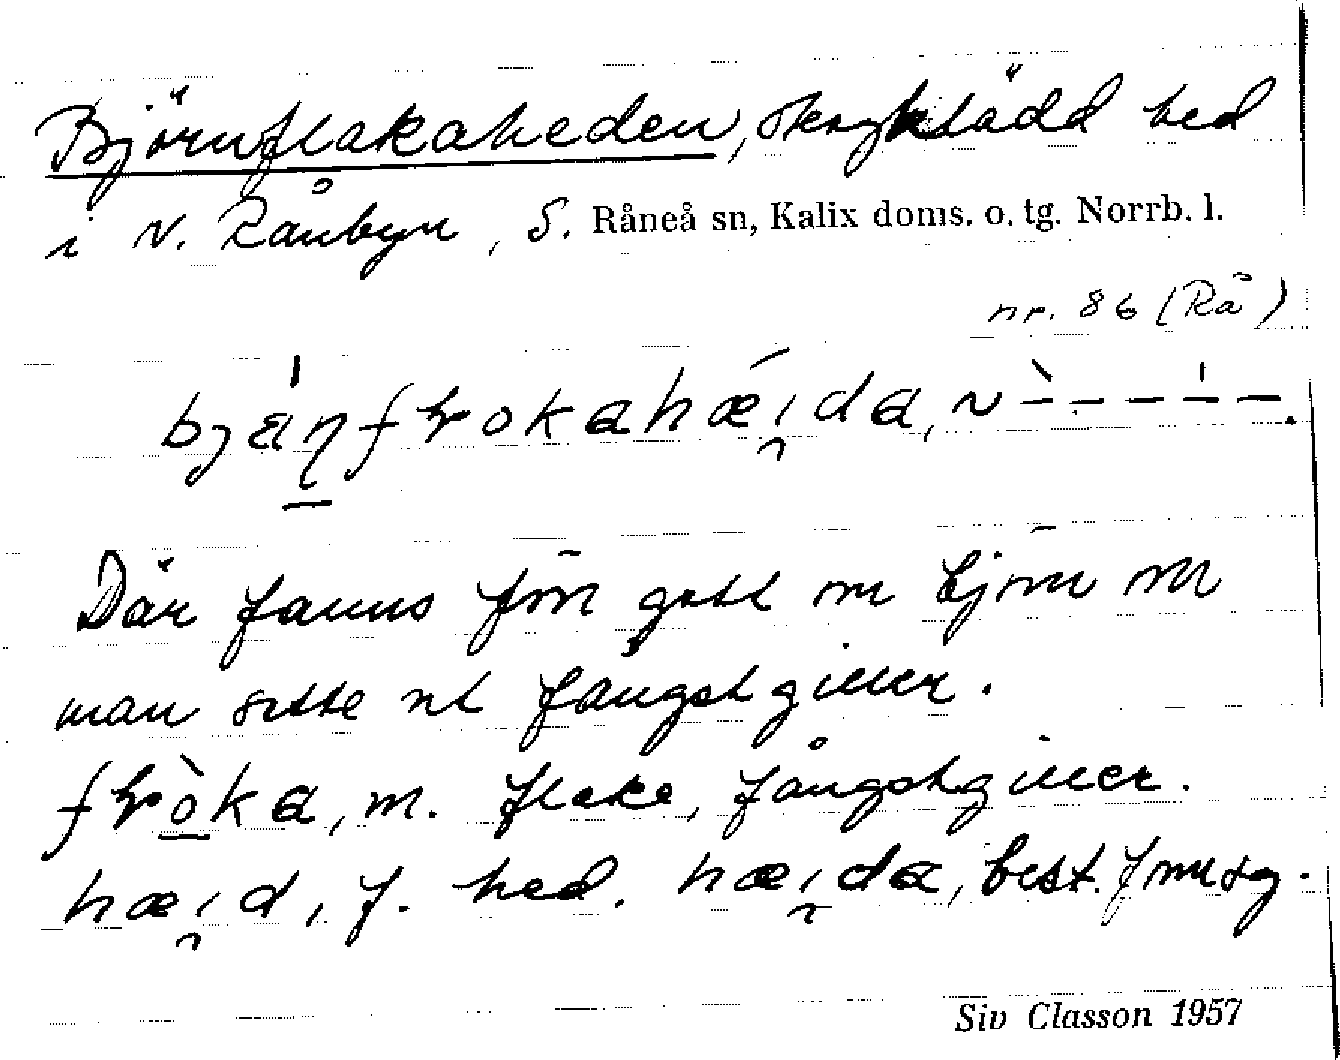 Björnflakaheden, skogklädd hed
i N. Rånbyn, S. Råneå sn, Kalix doms. o. tg. Norrb. l.
nr. 86 (Rå)
Där fanns förr gott om björn om
man sette ut fångstgiller.
m. flake, fångstgiller.
hæi̯d, f. hed. hæi̯da, best. form sg.
Siv Classon 1957